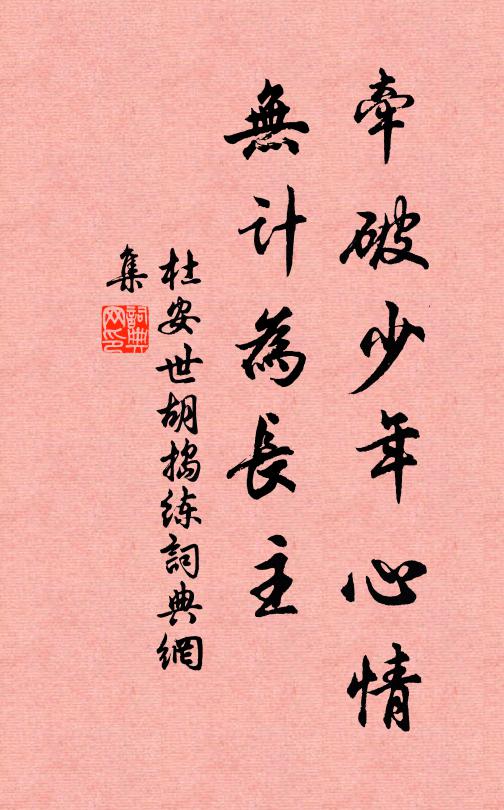 牵破少年心情
無计為長主
杜安世胡捣练詞典網
集
詞典
网印